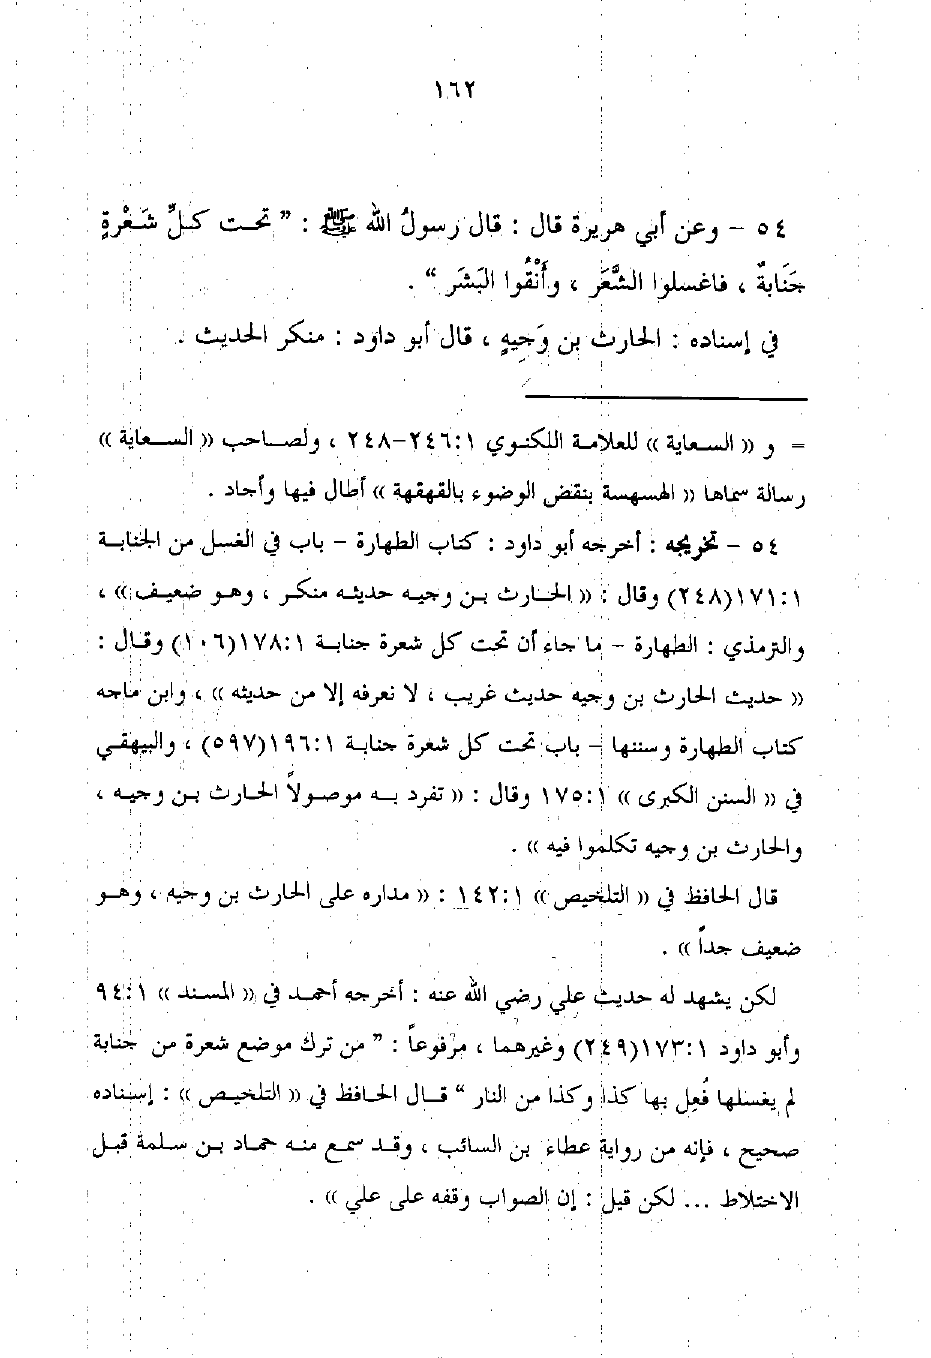 ١٦٢
٥٤ - وعن أبي هريرة قال : قال رسولُ الله ﷺ : " تحت كلِّ شَعْرةٍ
جَنَابةٌ ، فاغسلوا الشَّعَر ، وأَنْقُوا البَشَر " .
في إسناده : الحارث بن وَجيهٍ ، قال أبو داود : منكر الحديث .
= و « السعاية » للعلامة اللكنوي ١:٢٤٦-٢٤٨ ، ولصاحب « السعاية »
رسالة سماها « الهسهسة بنقض الوضوء بالقهقهة » أطال فيها وأجاد .
٥٤ - تخريجه : أخرجه أبو داود : كتاب الطهارة - باب في الغسل من الجنابة
١:١٧١(٢٤٨) وقال : « الحارث بن وجيه حديثه منكر ، وهو ضعيف » ،
والترمذي : الطهارة - ما جاء أن تحت كل شعرة جنابة ١:١٧٨(١٠٦) وقال :
« حديث الحارث بن وجيه حديث غريب ، لا نعرفه إلا من حديثه » ، وابن ماجه
كتاب الطهارة وسننها - باب تحت كل شعرة جنابة ١:١٩٦(٥٩٧) ، والبيهقي
في « السنن الكبرى » ١:١٧٥ وقال : « تفرد به موصولاً الحارث بن وجيه ،
والحارث بن وجيه تكلموا فيه » .
قال الحافظ في « التلخيص » ١:١٤٢ : « مداره على الحارث بن وجيه ، وهو
ضعيف جداً » .
لكن يشهد له حديث علي رضي الله عنه : أخرجه أحمد في « المسند » ١:٩٤
وأبو داود ١:١٧٣(٢٤٩) وغيرهما ، مرفوعاً : " من ترك موضع شعرة من جنابة
لم يغسلها فُعِل بها كذا وكذا من النار " قال الحافظ في « التلخيص » : إسناده
صحيح ، فإنه من رواية عطاء بن السائب ، وقد سمع منه حماد بن سلمة قبل
الاختلاط ... لكن قيل : إن الصواب وقفه على علي » .